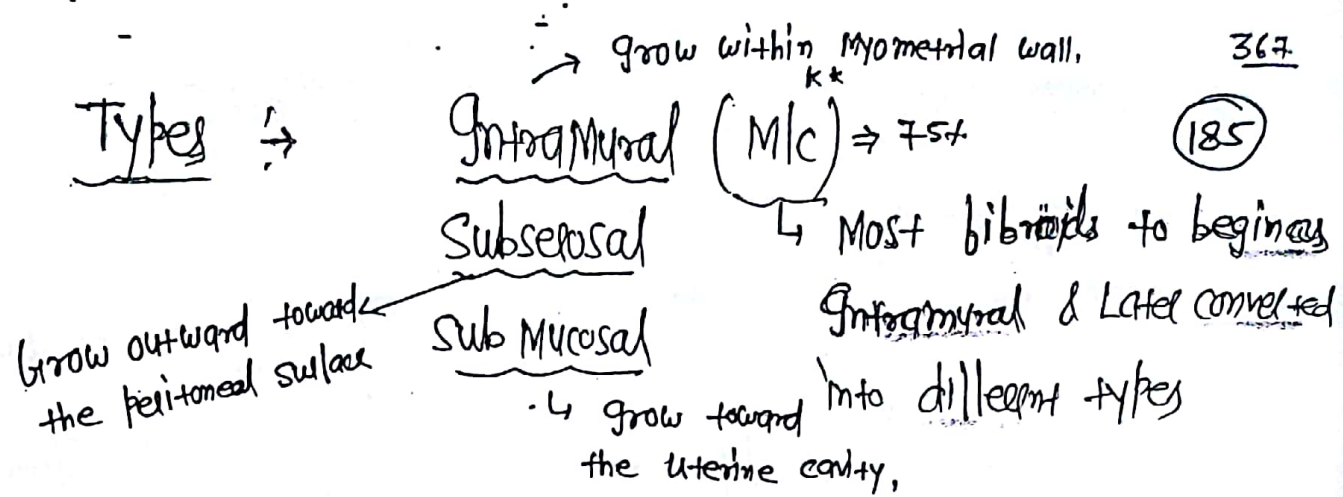 → grow within Myometrial wall. 367
Types → Intramural (M/c)** ⇒ 75% 185
Subserosal ↳ Most fibroids to begin as
Intramural & Later converted
into different types
Grow outward towards
the peritoneal surface
Sub Mucosal
↳ grow toward
the uterine cavity,